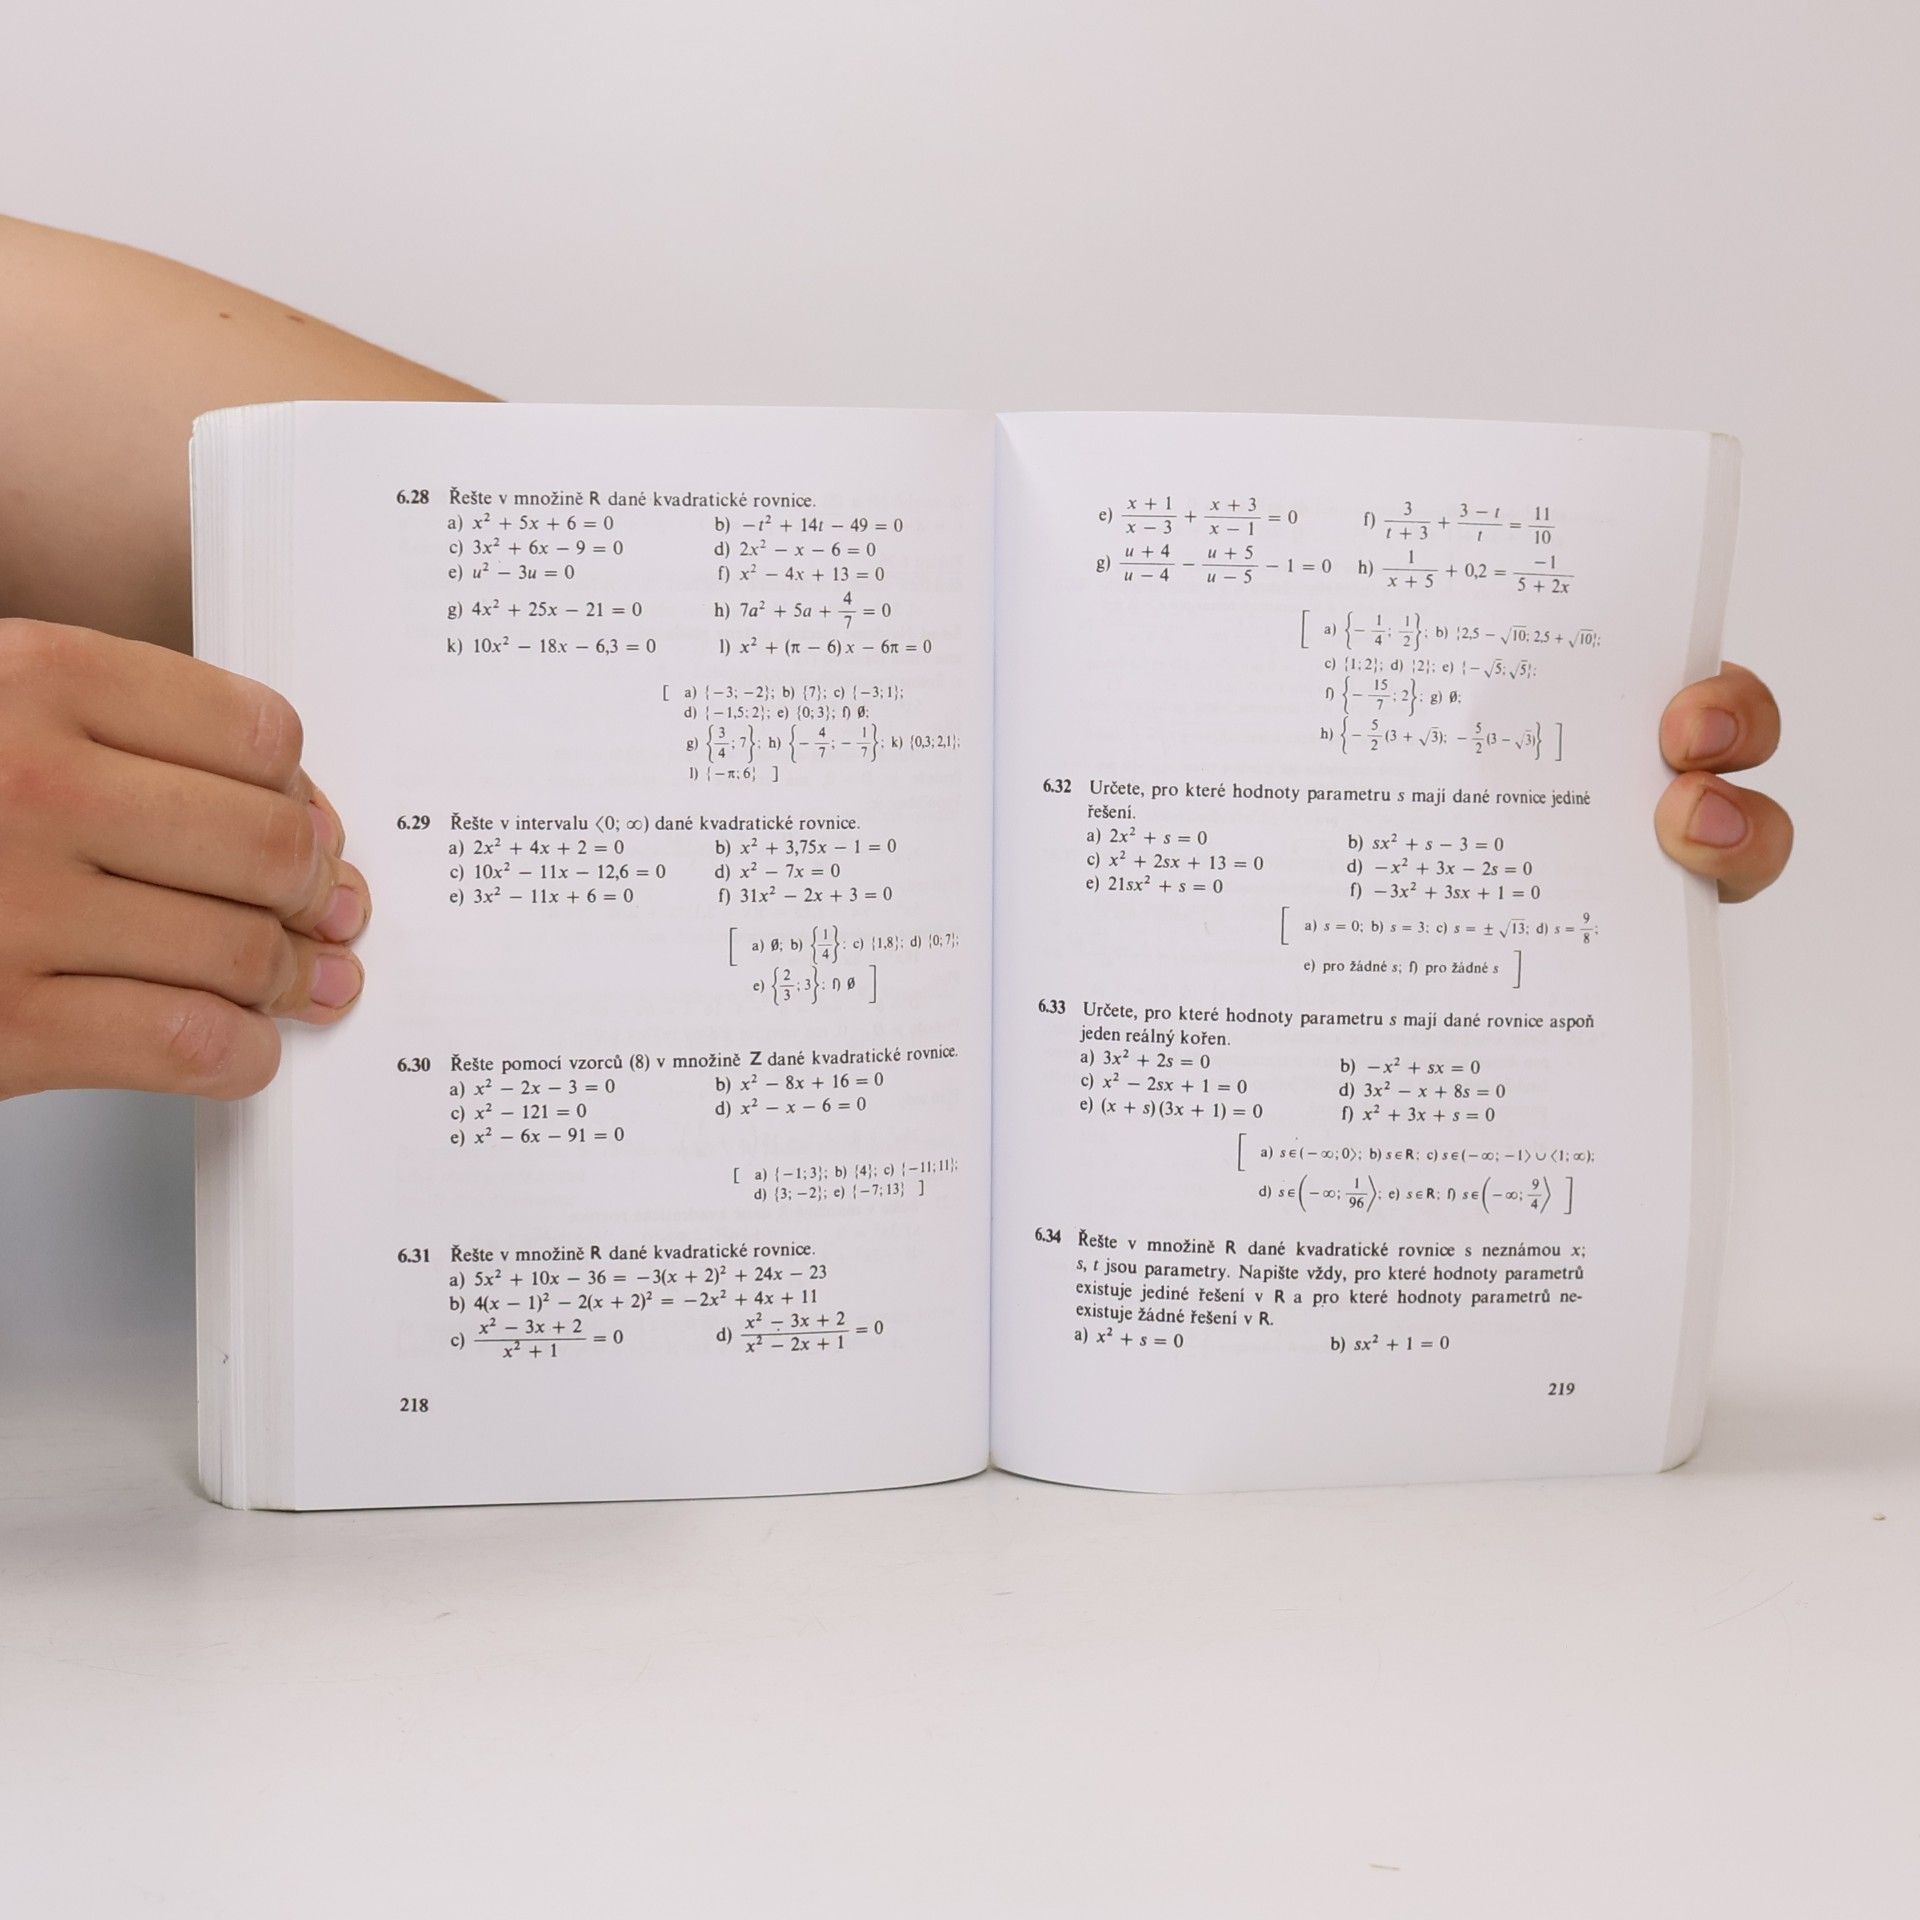 6.28 Řešte v množině R dané kvadratické rovnice.
a) x² + 5x + 6 = 0 b) −t² + 14t − 49 = 0
c) 3x² + 6x − 9 = 0 d) 2x² − x − 6 = 0
e) u² − 3u = 0 f) x² − 4x + 13 = 0
g) 4x² + 25x − 21 = 0 h) 7a² + 5a + 4/7 = 0
k) 10x² − 18x − 6,3 = 0 l) x² + (π − 6) x − 6π = 0
[ a) {−3; −2}; b) {7}; c) {−3; 1};
d) {−1,5; 2}; e) {0; 3}; f) ∅;
g) {3/4; 7}; h) {−4/7; −1/7}; k) {0,3; 2,1};
l) {−π; 6} ]
6.29 Řešte v intervalu ⟨0; ∞) dané kvadratické rovnice.
a) 2x² + 4x + 2 = 0 b) x² + 3,75x − 1 = 0
c) 10x² − 11x − 12,6 = 0 d) x² − 7x = 0
e) 3x² − 11x + 6 = 0 f) 31x² − 2x + 3 = 0
[ a) ∅; b) {1/4}; c) {1,8}; d) {0; 7};
e) {2/3; 3}; f) ∅ ]
6.30 Řešte pomocí vzorců (8) v množině Z dané kvadratické rovnice.
a) x² − 2x − 3 = 0 b) x² − 8x + 16 = 0
c) x² − 121 = 0 d) x² − x − 6 = 0
e) x² − 6x − 91 = 0
[ a) {−1; 3}; b) {4}; c) {−11; 11};
d) {3; −2}; e) {−7; 13} ]
6.31 Řešte v množině R dané kvadratické rovnice.
a) 5x² + 10x − 36 = −3(x + 2)² + 24x − 23
b) 4(x − 1)² − 2(x + 2)² = −2x² + 4x + 11
c) (x² − 3x + 2)/(x² + 1) = 0 d) (x² − 3x + 2)/(x² − 2x + 1) = 0
218
e) (x + 1)/(x − 3) + (x + 3)/(x − 1) = 0 f) 3/(t + 3) + (3 − t)/t = 11/10
g) (u + 4)/(u − 4) − (u + 5)/(u − 5) − 1 = 0 h) 1/(x + 5) + 0,2 = −1/(5 + 2x)
[ a) {−1/4; 1/2}; b) {2,5 − √10; 2,5 + √10};
c) {1; 2}; d) {2}; e) {−√5; √5};
f) {−15/7; 2}; g) ∅;
h) {−5/2(3 + √3); −5/2(3 − √3)} ]
6.32 Určete, pro které hodnoty parametru s mají dané rovnice jediné
řešení.
a) 2x² + s = 0 b) sx² + s − 3 = 0
c) x² + 2sx + 13 = 0 d) −x² + 3x − 2s = 0
e) 21sx² + s = 0 f) −3x² + 3sx + 1 = 0
[ a) s = 0; b) s = 3; c) s = ± √13; d) s = 9/8;
e) pro žádné s; f) pro žádné s ]
6.33 Určete, pro které hodnoty parametru s mají dané rovnice aspoň
jeden reálný kořen.
a) 3x² + 2s = 0 b) −x² + sx = 0
c) x² − 2sx + 1 = 0 d) 3x² − x + 8s = 0
e) (x + s)(3x + 1) = 0 f) x² + 3x + s = 0
[ a) s∈(−∞; 0⟩; b) s∈R; c) s∈(−∞; −1⟩ ∪ ⟨1; ∞);
d) s∈(−∞; 1/96⟩; e) s∈R; f) s∈(−∞; 9/4⟩ ]
6.34 Řešte v množině R dané kvadratické rovnice s neznámou x;
s, t jsou parametry. Napište vždy, pro které hodnoty parametrů
existuje jediné řešení v R a pro které hodnoty parametrů ne-
existuje žádné řešení v R.
a) x² + s = 0 b) sx² + 1 = 0
219